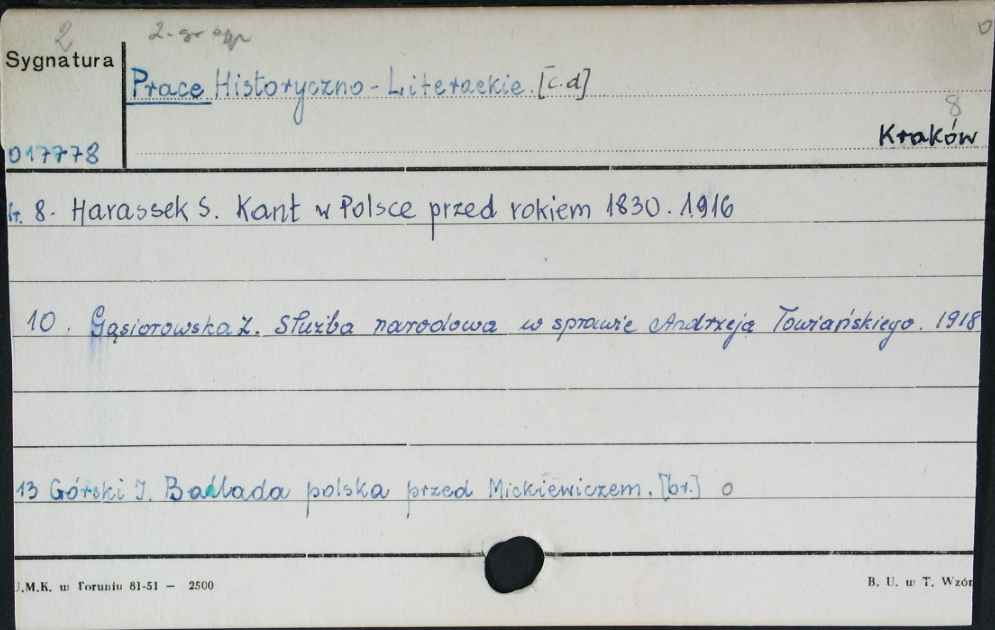 2
Sygnatura
Prace Historyczno-Literackie. [c.d]
8
Kraków
017778
8. Harassek S. Kant w Polsce przed rokiem 1830. 1916
10. Gąsiorowska Z. Służba narodowa w sprawie Andrzeja Towiańskiego. 1918
13 Górski J. Ballada polska przed Mickiewiczem. [br.] o
U.M.K. w Toruniu 81-51 — 2500
B. U. w T. Wzór